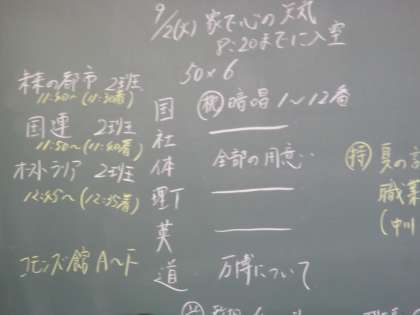 9/2(火) 家で心の天気
8:20までに入室
50×6
未来の都市 2班
11:40〜(11:30着)
国連 2班
11:50〜(11:40着)
オーストラリア 2班
12:45〜(12:35着)
コモンズ館 A〜F
国 暗唱1〜12番
社
体 全部の用意
理
英
道 万博について
特 夏の
職業
(中川